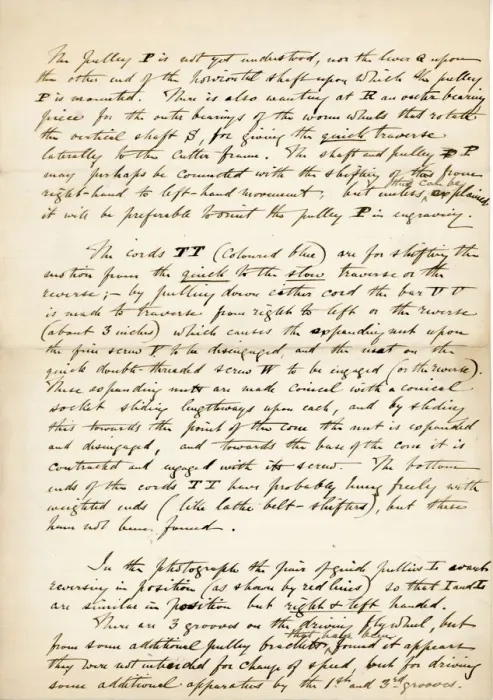 The pulley P is not yet understood, nor the lever Q upon
the other end of the horizontal shaft upon which the pulley
P is mounted. There is also wanting at R an outer bearing
piece for the outer bearings of the worm wheels that rotate
the vertical shaft S, for giving the quick traverse
laterally to the cutter frame. The shaft and pulley P
may perhaps be connected with the shifting of from
right-hand to left-hand movement; but unless this can be explained
it will be preferable to omit the pulley P in engraving.
The cords TT (coloured blue) are for shifting the
motion from the quick to the slow traverse or the
reverse; – by pulling down either cord the bar U U
is made to traverse from right to left or the reverse
(about 3 inches) which causes the expanding nut upon
the fine screw V to be disengaged, and the nut on the
quick double-threaded screw W to be engaged (or the reverse).
These expanding nuts are made conical with a conical
socket sliding lengthways upon each, and by sliding
this towards the point of the cone the nut is expanded
and disengaged, and towards the base of the cone it is
contracted and engaged with its screw. The bottom
ends of the cords TT have probably hung freely with
weighted ends (like lathe belt-shifters), but these
have not been found.
In the photograph the pair of guide pullies I wants
reversing in position (as shown by red lines) so that I and I
are similar in position but right & left handed.
There are 3 grooves on the driving flywheel, but
from some additional pulley brackets that have been found it appears
they were not intended for change of speed, but for driving
some additional apparatus by the 1st and 3rd grooves.